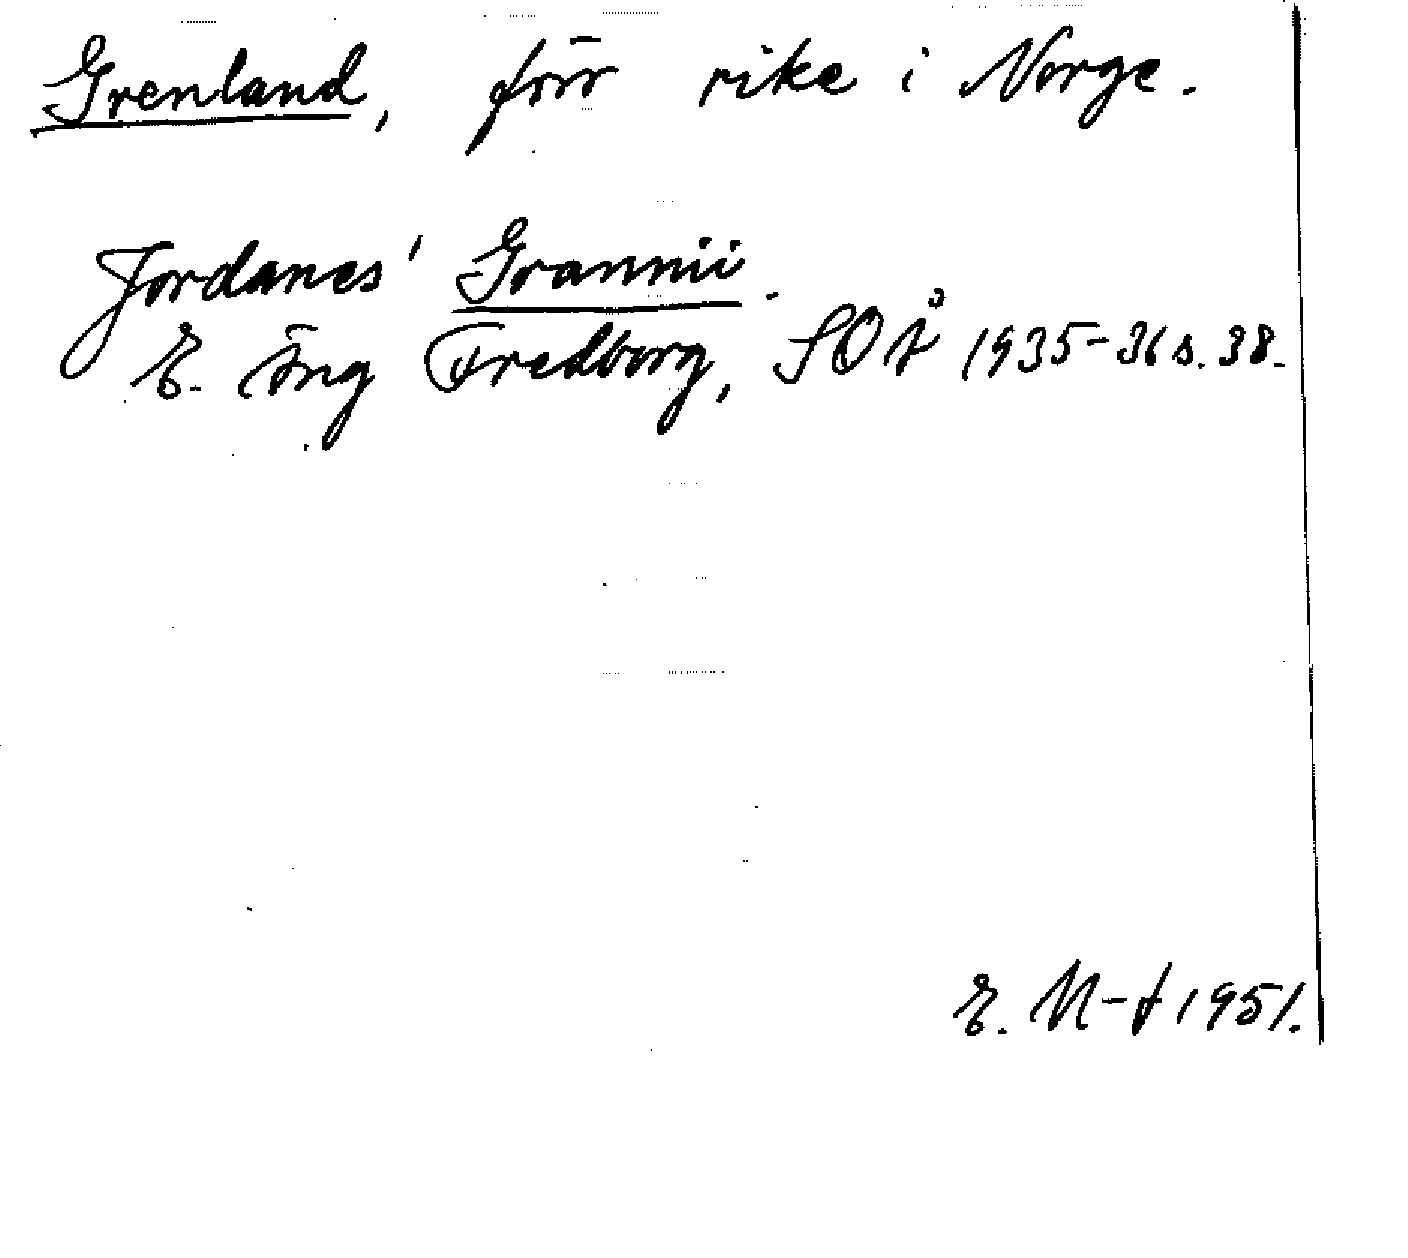 Grenland, förr rike i Norge.
Jordanes' Grannii.
E. Öng Fredborg, SOÅ 1935-36 s. 38.
E. N-t 1951.